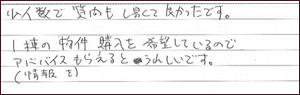 少人数で質問もし易くて良かったです。
1棟の物件購入を希望しているので
アドバイスもらえるとうれしいです。
(情報を)